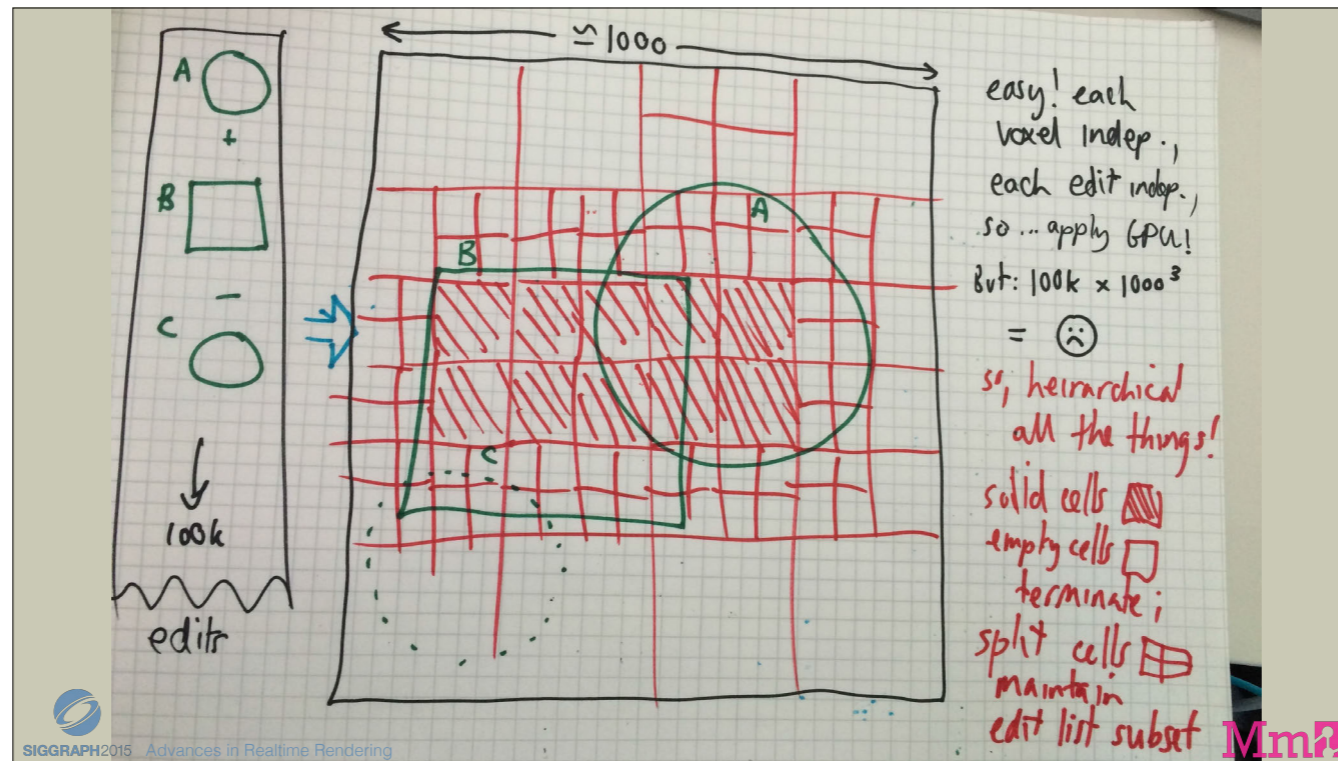 A
+
B
−
C
100k
edits
≃ 1000
A
B
C
easy! each
voxel indep.,
each edit indep.,
so ... apply GPU!
But: 100k × 1000³
= ☹
so, heirarchical
all the things!
solid cells
empty cells
terminate;
split cells
maintain
edit list subset
SIGGRAPH2015 Advances in Realtime Rendering
Mm